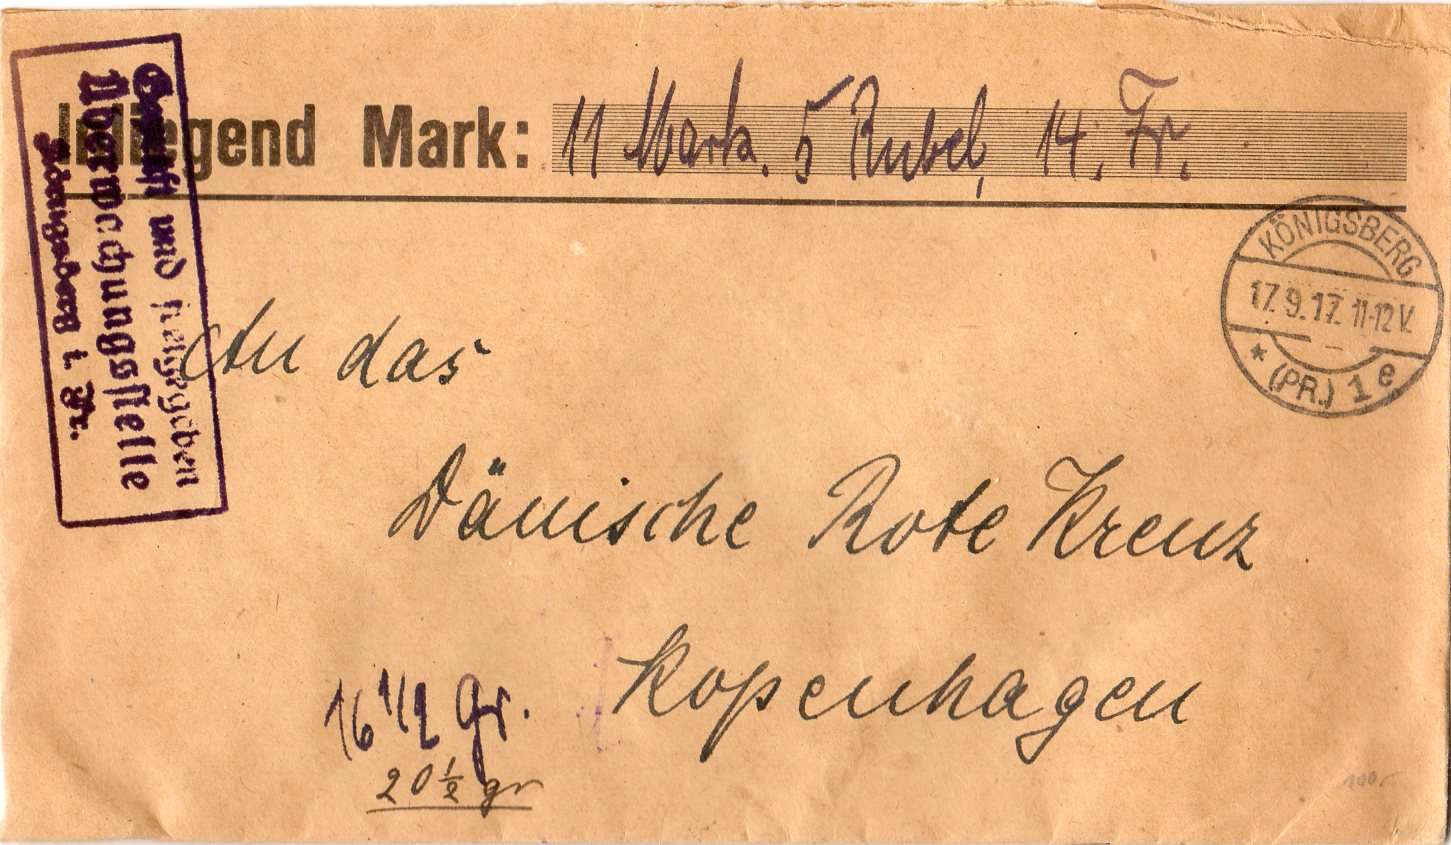 Inliegend Mark: 11 Mark. 5 Rubel, 14. Fr.
Geprüft und freigegeben
Überwachungsstelle
Königsberg i. Pr.
KÖNIGSBERG
17.9.17. 11-12 V.
* (PR.) 1 e
An das
Dänische Rote Kreuz
Kopenhagen
16 1/2 gr.
20 1/2 gr